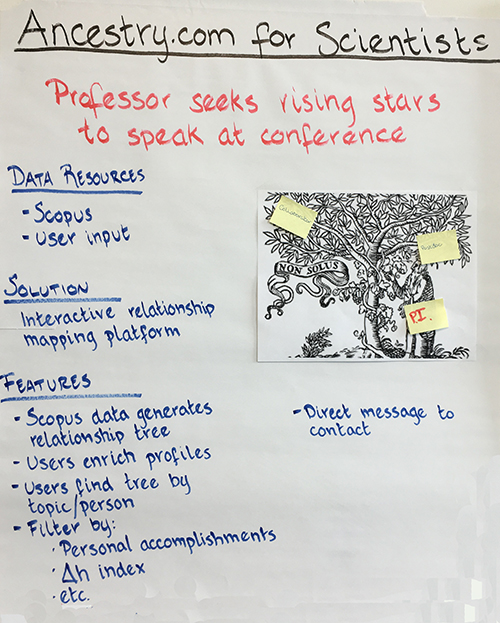 Ancestry.com for Scientists
Professor seeks rising stars
to speak at conference
DATA RESOURCES
- Scopus
- User input
SOLUTION
Interactive relationship
mapping platform
FEATURES
- Scopus data generates
relationship tree
- Users enrich profiles
- Users find tree by
topic/person
- Filter by:
· Personal accomplishments
· Δh index
· etc.
NON SOLUS
P.I.
- Direct message to
contact